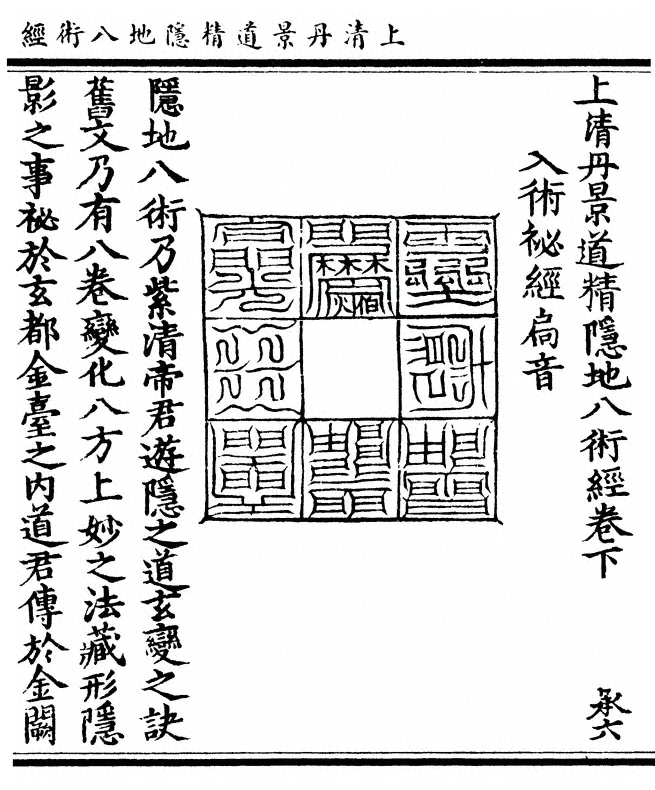 上清丹景道精隱地八術經
上清丹景道精隱地八術經卷下
承六
入術祕經扃音
隱地八術乃紫清帝君遊隱之道玄變之訣
舊文乃有八卷變化八方上妙之法藏形隱
影之事祕於玄都金臺之內道君傳於金闕